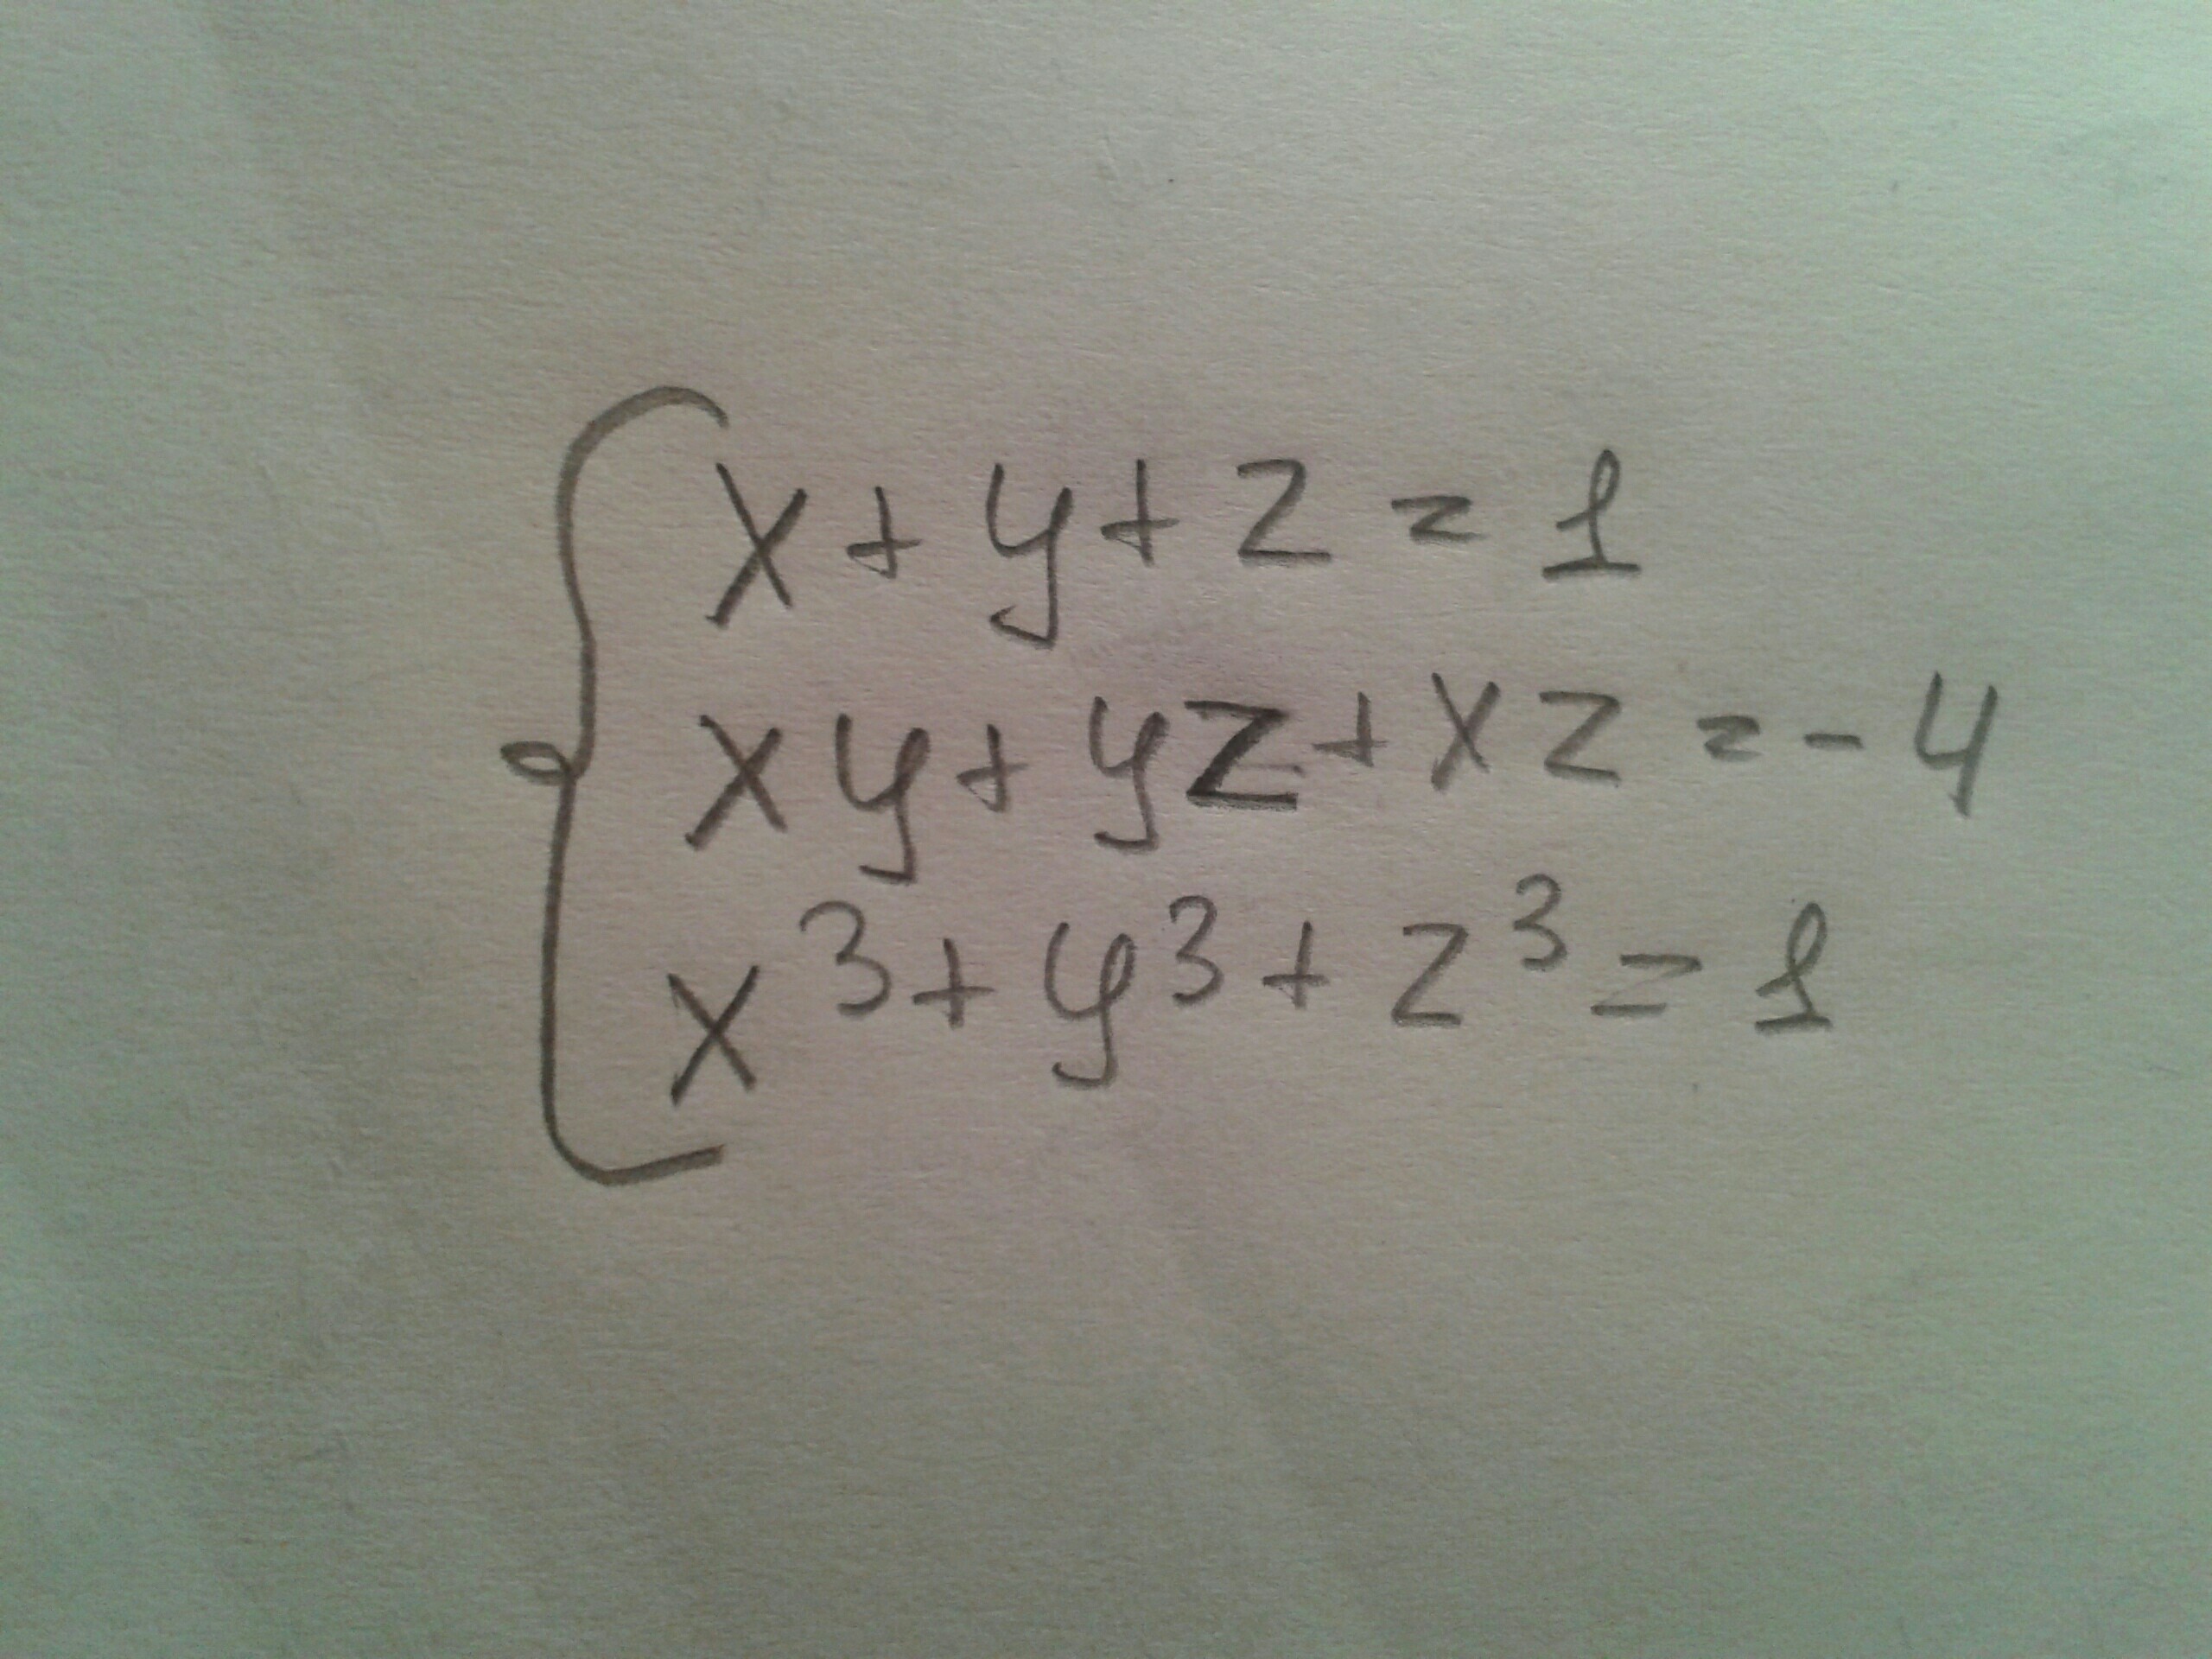 x + y + z = 1
xy + yz + xz = -4
x³ + y³ + z³ = 1